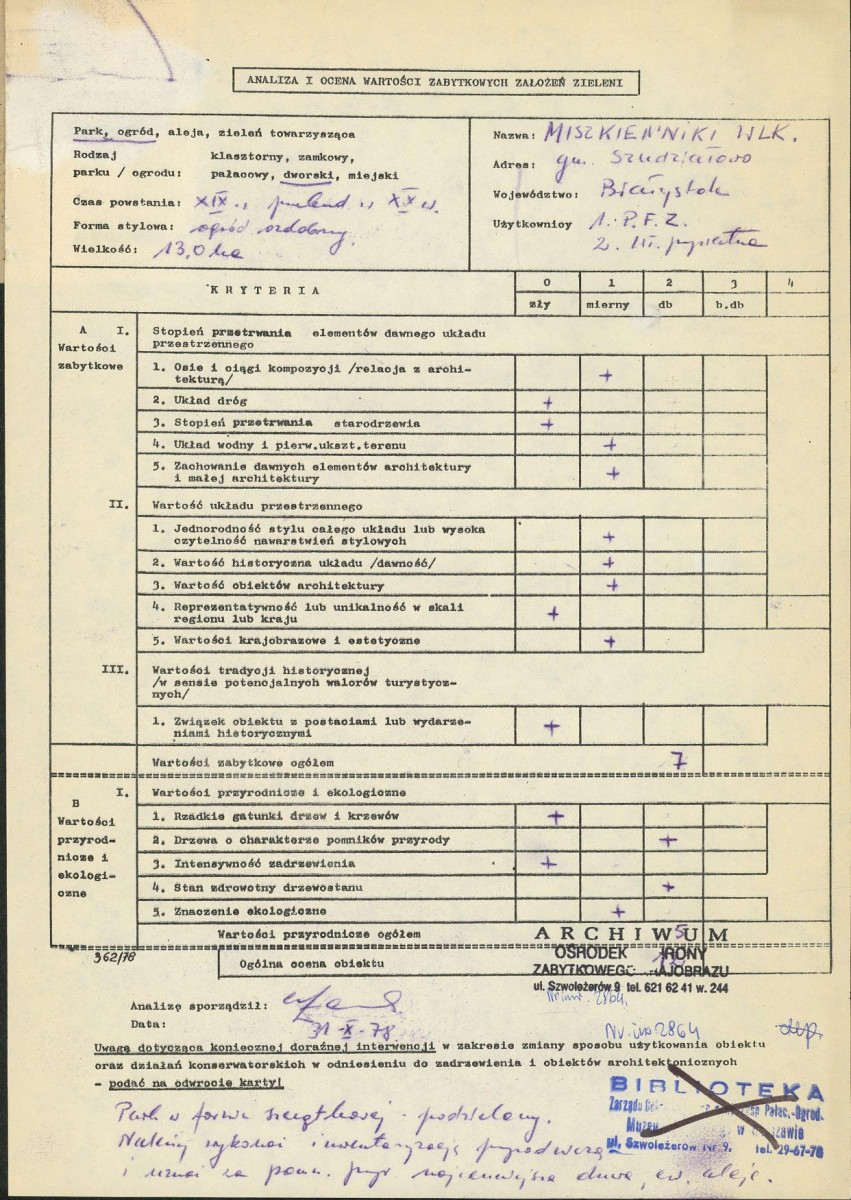 ANALIZA I OCENA WARTOŚCI ZABYTKOWYCH ZAŁOŻEŃ ZIELENI
Park, ogród, aleja, zieleń towarzysząca
Rodzaj klasztorny, zamkowy,
parku / ogrodu: pałacowy, dworski, miejski
Czas powstania: XIX w. przełom w XX w.
Forma stylowa: ogród ozdobny.
Wielkość: 13,0 ha
Nazwa: MISZKIENNIKI WLK.
Adres: gm. Szudziałowo
Województwo: Białystok
Użytkownicy 1. P.F.Z.
2. prywatna
KRYTERIA
0 1 2 3 4
zły mierny db b.db
A I. Stopień przetrwania elementów dawnego układu
Wartości przestrzennego
zabytkowe
1. Osie i ciągi kompozycji /relacja z archi- +
tekturą/
2. Układ dróg +
3. Stopień przetrwania starodrzewia +
4. Układ wodny i pierw.ukszt.terenu +
5. Zachowanie dawnych elementów architektury +
i małej architektury
II. Wartość układu przestrzennego
1. Jednorodność stylu całego układu lub wysoka +
czytelność nawarstwień stylowych
2. Wartość historyczna układu /dawność/ +
3. Wartość obiektów architektury +
4. Reprezentatywność lub unikalność w skali +
regionu lub kraju
5. Wartości krajobrazowe i estetyczne +
III. Wartości tradycji historycznej
/w sensie potencjalnych walorów turystycz-
nych/
1. Związek obiektu z postaciami lub wydarze- +
niami historycznymi
Wartości zabytkowe ogółem 7
B I. Wartości przyrodnicze i ekologiczne
Wartości
przyrod-
nicze i
ekologi-
czne
1. Rzadkie gatunki drzew i krzewów +
2. Drzewa o charakterze pomników przyrody +
3. Intensywność zadrzewienia +
4. Stan zdrowotny drzewostanu +
5. Znaczenie ekologiczne +
Wartości przyrodnicze ogółem 5
362/78 Ogólna ocena obiektu
ARCHIWUM
OŚRODEK
ZABYTKOWEGO KRAJOBRAZU
ul. Szwoleżerów 9 tel. 621 62 41 w. 244
Nr inw. 2864.
Analizę sporządził:
Data: 31-X-78.
Nr inw 2864
Uwagę dotycząca koniecznej doraźnej interwencji w zakresie zmiany sposobu użytkowania obiektu
oraz działań konserwatorskich w odniesieniu do zadrzewienia i obiektów architektonicznych
- podać na odwrocie karty!
BIBLIOTEKA
Zarządu Pałac.-Ogrod.
w
ul. Szwoleżerów Nr 9, tel. 29-67-78
Park w formie szczątkowej - podzielony.
Należy wykonać inwentaryzację przyrodniczą
i uznać za pomn. przyr. najcenniejsze drzewa, ew. aleje.